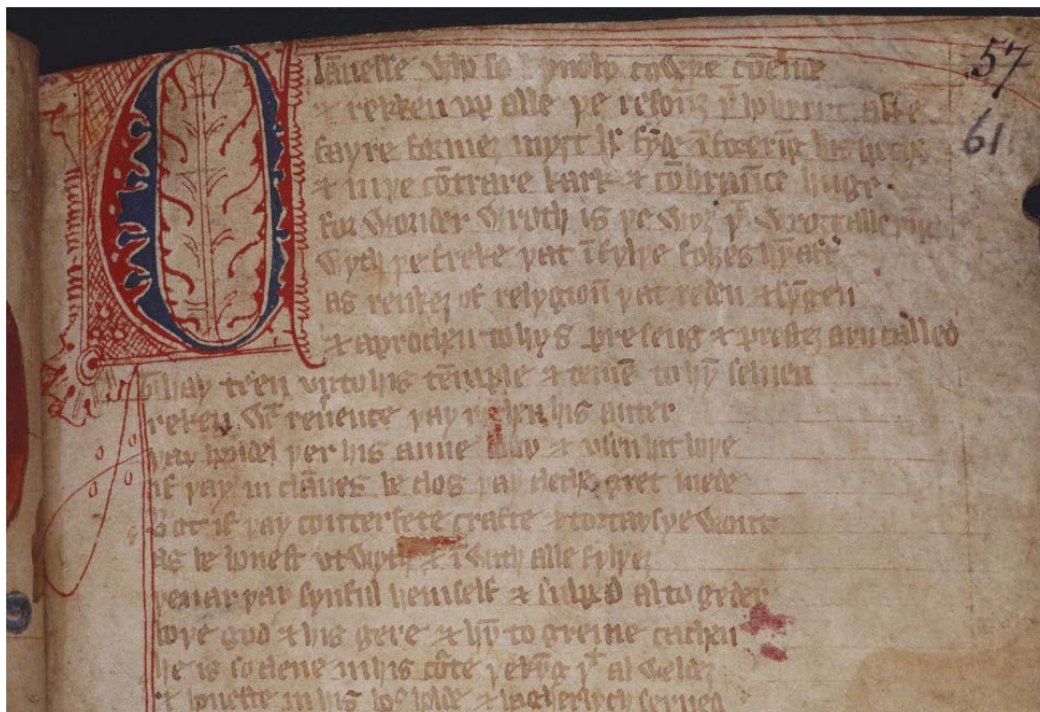 Clānesse who so kyndly cowþe cōmende
& rekken vp alle þe resoūz þᵗ ho by riȝt askez
fayre formez myȝt he fȳde ī forþerīg his speche
& in þe cōtrare kark & cōbraūce huge
for wonder wroth is þe wyȝ þᵗ wroȝt alle þīges
wyth þe freke þat ī fylþe folȝes hȳ after
as renkez of relygioūn þat reden & syngen
& aprochen to hys presens & prestez arn called
Thay teen vnto his tēmple & temē to hȳ seluen
reken wᵗ reuerence þay rychen his auter
þay hondel þer his aune body & vsen hit boþe
if þay in clānes be clos þay cleche gret mede
Bot if þay conterfete crafte & cortaysye wont
as be honest vtwyth & īwith alle fylþez
þen ar þay synful hemself & sulped altogeder
boþe god & his gere & hȳ to greme cachen
he is so clene in his co͛te þe kȳg þᵗ al weldez
& honeste in his ho͛sholde & hagherlych serued
57
61